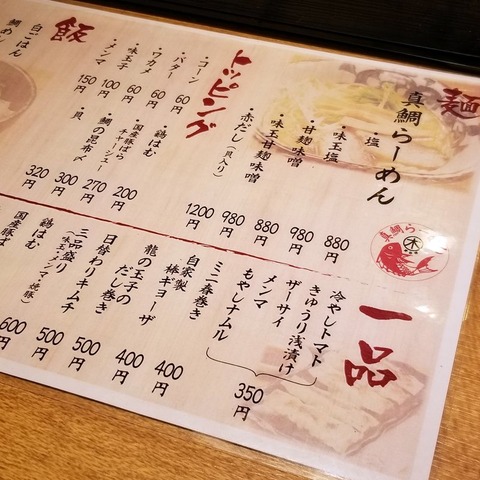 麺
真鯛らーめん
・塩 880円
・味玉塩 980円
・甘麹味噌 880円
・味玉甘麹味噌 980円
・赤だし(貝入り) 1200円
真鯛ら
トッピング
・コーン 60円
・バター 60円
・ワカメ 60円
・味玉子 100円
・メンマ 150円
・鶏はむ 200円
・国産豚ばらチャーシュー 270円
・鯛の昆布〆 300円
・貝 320円
飯
白ごはん
鯛め
一品
冷やしトマト
きゅうり浅漬け
ザーサイ
メンマ
もやしナムル
ミニ春巻き
350円
自家製棒ギョーザ 400円
龍の玉子のだし巻き 400円
日替わりキムチ 500円
三品盛り(味玉・メンマ・焼豚) 500円
鶏はむ 600円
国産豚ば